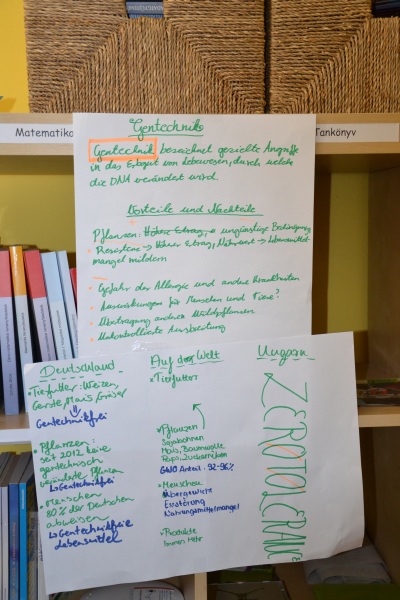 Matematika
Tankönyv
Gentechnik
Gentechnik bezeichnet gezielte Angriffe
in das Erbgut von Lebewesen, durch welche
die DNA verändert wird
Vorteile und Nachteile
Pflanzen: Höhere Ertrag, ungünstige Bedingung
Resistenz → Höherer Ertrag, Nährwert → Lebensmittel-
mangel mildern
- Gefahr der Allergie und andere Krankheiten
Auswirkungen für Menschen und Tiere?
Übertragung andere Wildpflanzen
Unkontrollierte Ausbreitung
Deutschland
Tierfutter: Weizen,
Gerste, Mais, Gräser
Gentechnikfrei
Pflanzen:
seit 2012 keine
gentechnisch
veränderte Pflanzen
↳ Gentechnikfrei
Menschen
80% der Deutschen
abweisen
↳ Gentechnikfreie
Lebensmittel
Auf der Welt
Tierfutter
Pflanzen
Sojabohnen
Mais, Baumwolle
Raps, Zuckerrüben
GVO Anteil: 92-96%
Menschen
Übergewicht
Essstörung
Nahrungsmittelmangel
Produkte
Immer mehr
Ungarn
ZEROTOLERANZ